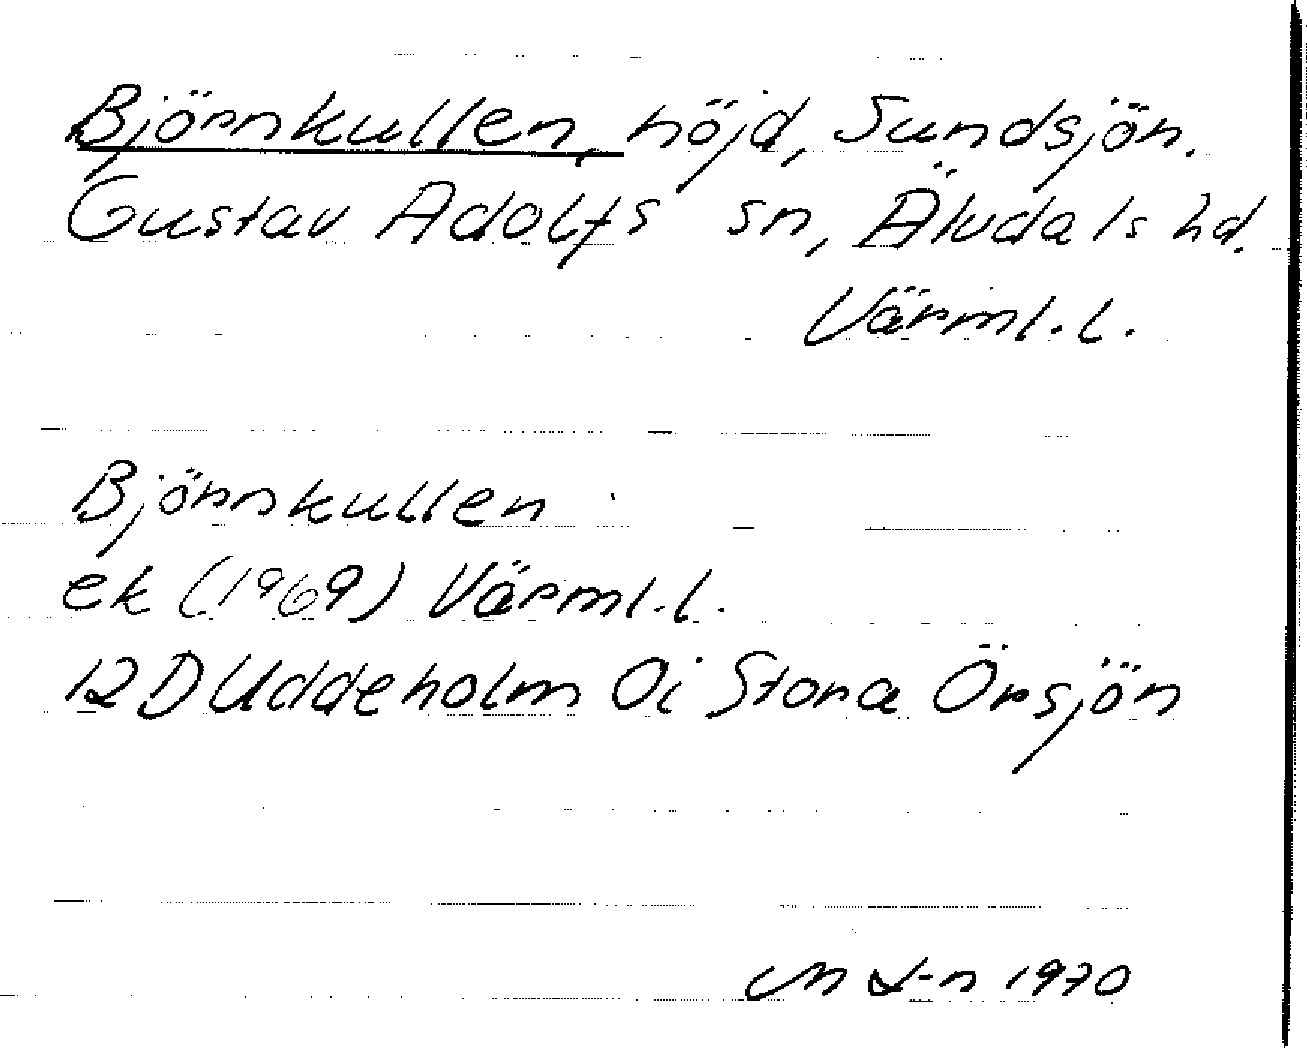 Björnkullen, höjd, Sundsjön.
Gustav Adolfs sn, Älvdals hd.
Värml.l.
Björnkullen
ek (1969) Värml.l.
12D Uddeholm 0i Stora Örsjön
1970